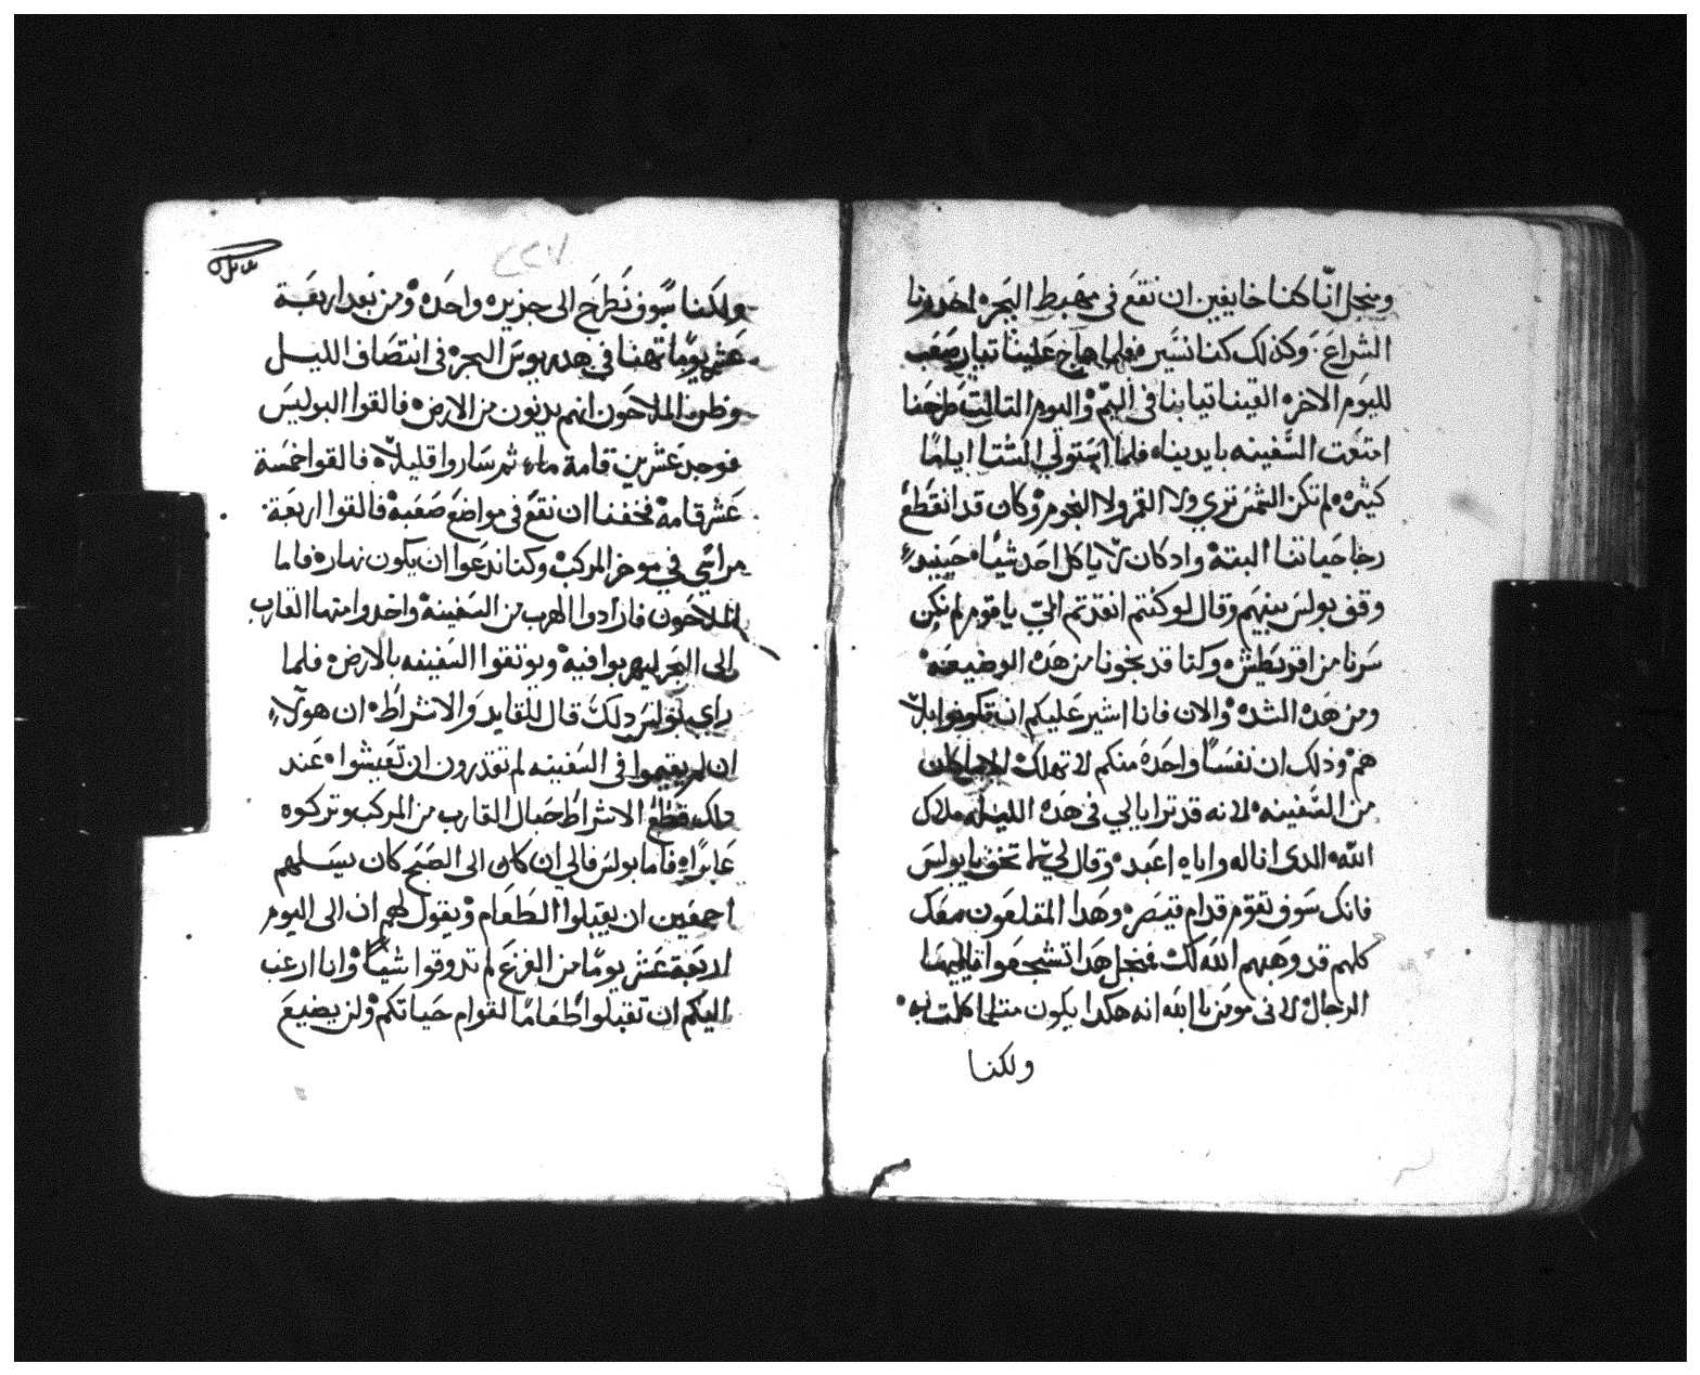 ومنجل انّا كنا خايفين ان نقع في مهبط البحر احدرنا
الشراع. وكذلك كنا نسير فلما هاج علينا تيار صعب
لليوم الاخر القينا تيابنا في اليم واليوم التالت طرحنا
امتعت السفينه بايدينا فلما استولي الشتا اياما
كثيره لم تكن الشمس تري ولا القمر ولا النجوم وكان قد انقطع
رجا حياتنا البته واد كان لا ياكل احد شيا حينيد
وقف بولس بينهم وقال لو كنتم انقدتم الي يا قوم لم نكن
سرنا من اقريطش وكنا قد نجونا من هده الوضيعه
ومن هده الشده والان فانا اشير عليكم ان تكونوا بلا
هم وذلك ان نفسا واحدة منكم لا تهلك
من السفينه لانه قد ترايا لي في هده الليله ملاك
الله الدى انا له واياه اعبد وقال لي لا تخف يا بولس
فانك سوف تقوم قدام قيصر وهدا المقلعون معك
كلهم قد وهبهم الله لك فمنجل هدا تشجعوا ايها
الرجال لانى مومن بالله انه هكدا يكون مثلما كلمت به
ولكنا
٢٢٧
ولكنا سوف نطرح الى جزيره واحده ومن بعد اربعة
عشر يوما تهنا في هدريوس البحر فى انتصاف الليل
وظن الملاحون انهم يدنون من الارض فالقوا البوليس
فوجد عشرين قامة ماء ثم ساروا قليلا فالقوا خمسة
عشر قامة فخفنا ان نقع في مواضع صعبه فالقوا اربعة
مراسي في موخر المركب وكنا ندعوا ان يكون نهاره فاما
الملاحون فارادوا الهرب من السفينة واحدروا منها القارب
الى البحر ليهربوا فيه ويوتقوا السفينه بالارض فلما
راي بولس دلك قال للقايد والاشراط ان هولاء
ان لم يقيموا فى السفينه لم تقدرون ان تعيشوا عند
دلك قطع الاشراط حبال القارب من المركب وتركوه
عابرا فاما بولس فالي ان كان الى الصبح كان يسلهم
اجمعين ان يقبلوا الطعام ويقول لهم ان الى اليوم
اربعة عشر يوما من الفزع لم تدوقوا شيا وانا ارغب
اليكم ان تقبلوا طعاما لقوام حياتكم ولن يضيع